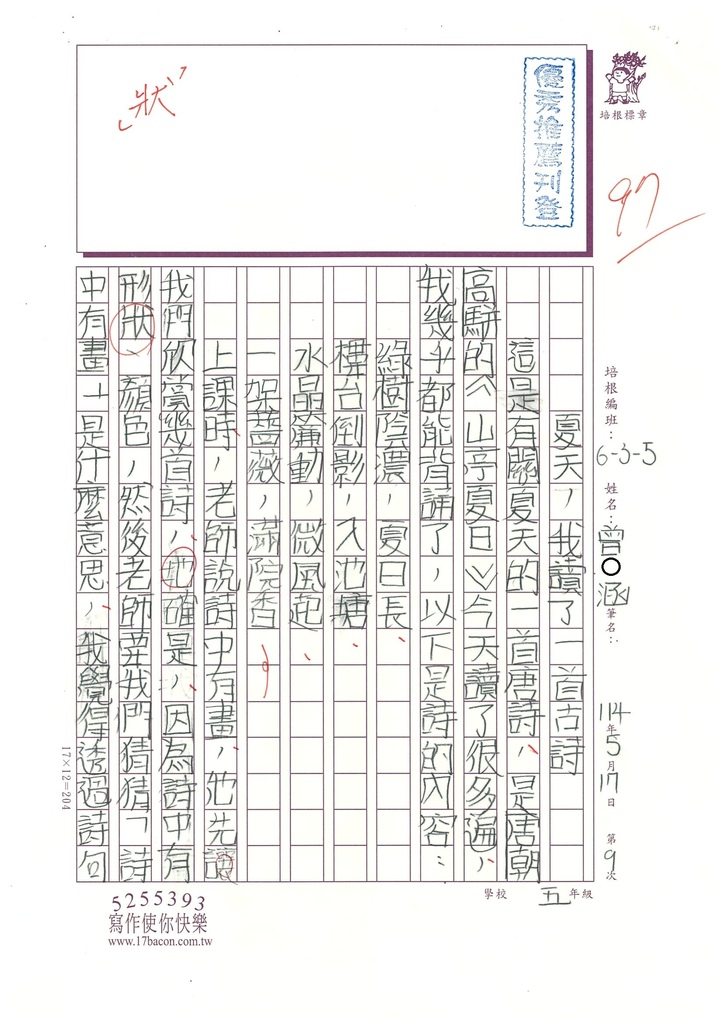 培根標章
97
優秀推薦刊登
「狀」
培根編班：6-3-5 姓名：曾○涵 筆名： 114年5月17日 第9次
學校 五年級
夏天，我讀了一首古詩
這是有關夏天的一首唐詩，是唐朝
高駢的︽山亭夏日︾今天讀了很多遍，
我幾乎都能背誦了，以下是詩的內容：
綠樹陰濃，夏日長、
樓台倒影，入池塘
水晶簾動，微風起、
一架薔薇，滿院香
上課時，老師說詩中有畫，他先讀
我們欣賞幾首詩，地確是，因為詩中有
形狀、顏色，然後老師要我們猜猜「詩
中有畫」是什麼意思，我覺得透過詩句
17×12=204
5255393
寫作使你快樂
www.17bacon.com.tw